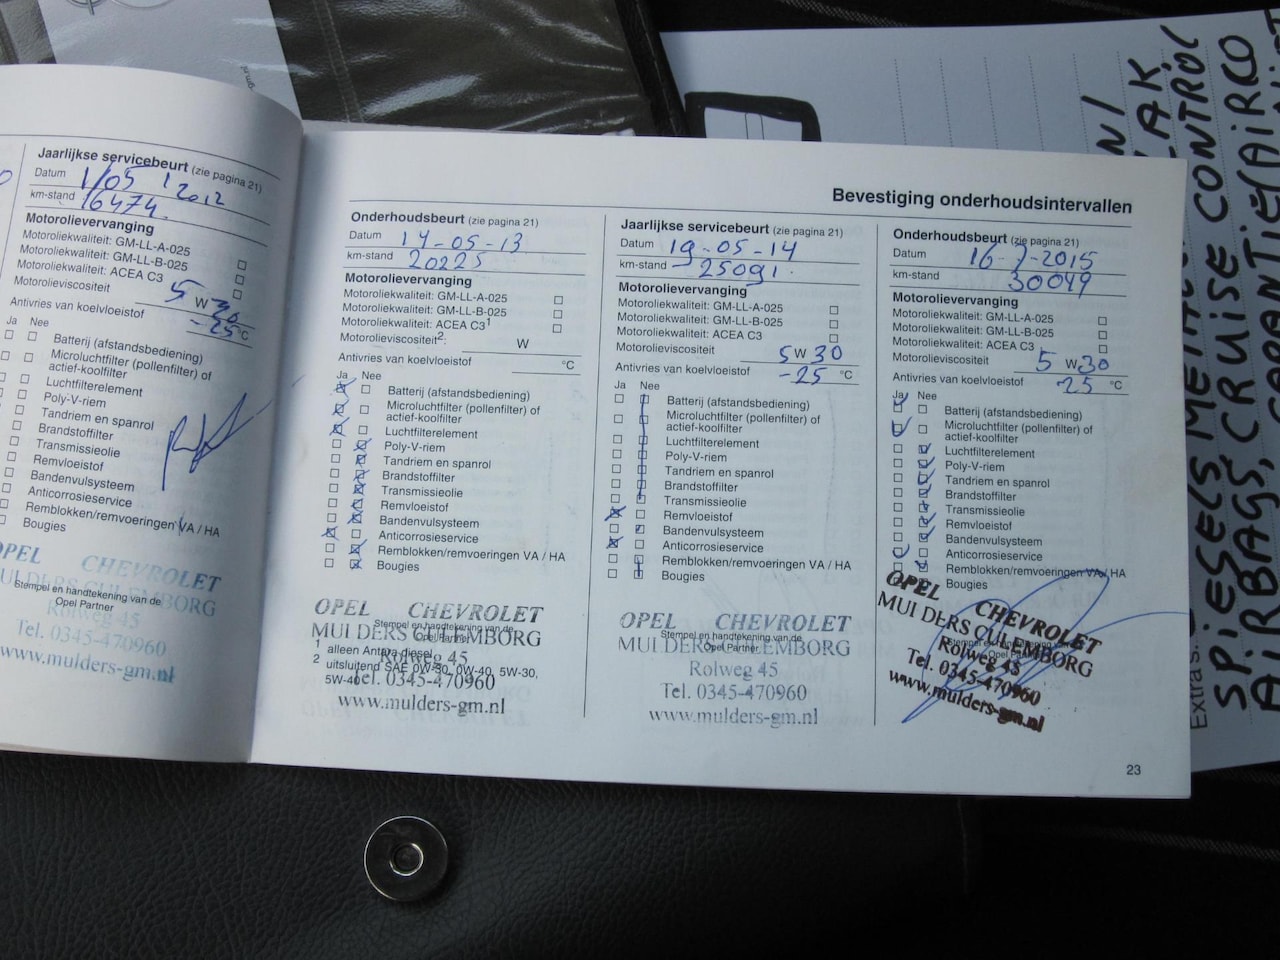 Jaarlijkse servicebeurt (zie pagina 21)
Datum 1/05 / 2012
km-stand 16474.
Motorolievervanging
Motoroliekwaliteit: GM-LL-A-025
Motoroliekwaliteit: GM-LL-B-025
Motoroliekwaliteit: ACEA C3
Motorolieviscositeit 5 W 30
Antivries van koelvloeistof -25 °C
Ja Nee
Batterij (afstandsbediening)
Microluchtfilter (pollenfilter) of
actief-koolfilter
Luchtfilterelement
Poly-V-riem
Tandriem en spanrol
Brandstoffilter
Transmissieolie
Remvloeistof
Bandenvulsysteem
Anticorrosieservice
Remblokken/remvoeringen VA / HA
Bougies
OPEL CHEVROLET
MULDERS CULEMBORG
Stempel en handtekening van de
Opel Partner
Rolweg 45
Tel. 0345-470960
www.mulders-gm.nl
Bevestiging onderhoudsintervallen
Onderhoudsbeurt (zie pagina 21)
Datum 14-05-13
km-stand 20225
Motorolievervanging
Motoroliekwaliteit: GM-LL-A-025
Motoroliekwaliteit: GM-LL-B-025
Motoroliekwaliteit: ACEA C3¹
Motorolieviscositeit²: W
Antivries van koelvloeistof °C
Ja Nee
Batterij (afstandsbediening)
Microluchtfilter (pollenfilter) of
actief-koolfilter
Luchtfilterelement
Poly-V-riem
Tandriem en spanrol
Brandstoffilter
Transmissieolie
Remvloeistof
Bandenvulsysteem
Anticorrosieservice
Remblokken/remvoeringen VA / HA
Bougies
OPEL CHEVROLET
Stempel en handtekening van de
MULDERS CULEMBORG
Opel Partner
1 alleen Antara diesel
Rolweg 45
2 uitsluitend SAE 0W-30, 0W-40, 5W-30,
5W-40
Tel. 0345-470960
www.mulders-gm.nl
Jaarlijkse servicebeurt (zie pagina 21)
Datum 19-05-14
km-stand 25091.
Motorolievervanging
Motoroliekwaliteit: GM-LL-A-025
Motoroliekwaliteit: GM-LL-B-025
Motoroliekwaliteit: ACEA C3
Motorolieviscositeit 5 W 30
Antivries van koelvloeistof -25 °C
Ja Nee
Batterij (afstandsbediening)
Microluchtfilter (pollenfilter) of
actief-koolfilter
Luchtfilterelement
Poly-V-riem
Tandriem en spanrol
Brandstoffilter
Transmissieolie
Remvloeistof
Bandenvulsysteem
Anticorrosieservice
Remblokken/remvoeringen VA / HA
Bougies
OPEL CHEVROLET
Stempel en handtekening van de
MULDERS CULEMBORG
Opel Partner
Rolweg 45
Tel. 0345-470960
www.mulders-gm.nl
Onderhoudsbeurt (zie pagina 21)
Datum 16-7-2015
km-stand 30049
Motorolievervanging
Motoroliekwaliteit: GM-LL-A-025
Motoroliekwaliteit: GM-LL-B-025
Motoroliekwaliteit: ACEA C3
Motorolieviscositeit 5 W 30
Antivries van koelvloeistof 25 °C
Ja Nee
Batterij (afstandsbediening)
Microluchtfilter (pollenfilter) of
actief-koolfilter
Luchtfilterelement
Poly-V-riem
Tandriem en spanrol
Brandstoffilter
Transmissieolie
Remvloeistof
Bandenvulsysteem
Anticorrosieservice
Remblokken/remvoeringen VA / HA
Bougies
OPEL CHEVROLET
MULDERS CULEMBORG
Stempel en handtekening van de
Opel Partner
Rolweg 45
Tel. 0345-470960
www.mulders-gm.nl
23
Extra's:
SPIEGELS
CRUISE CONTROL
AIRBAGS,